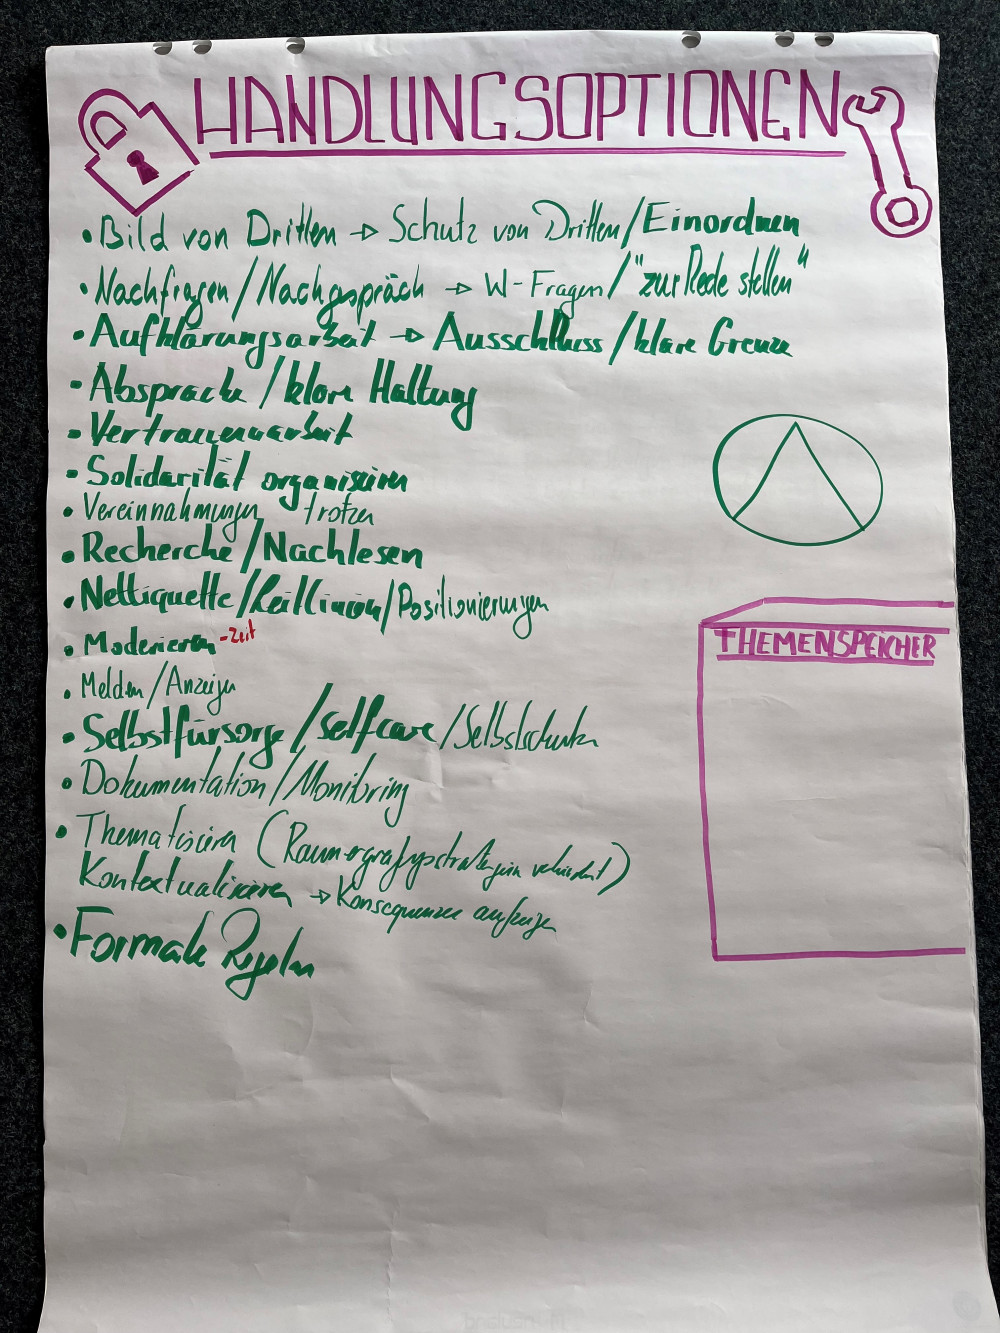 HANDLUNGSOPTIONEN
• Bild von Dritten → Schutz von Dritten/Einordnen
• Nachfragen/Nachgespräch → W-Fragen/"zur Rede stellen"
• Aufklärungsarbeit → Ausschluss/klare Grenze
• Absprache/klare Haltung
• Vertrauensarbeit
• Solidarität organisieren
• Vereinnahmungen trotzen
• Recherche/Nachlesen
• Nettiquette/Leitlinien/Positionierungen
• Moderieren -Zeit
• Melden/Anzeigen
• Selbstfürsorge/selfcare/Selbstschutz
• Dokumentation/Monitoring
• Thematisieren (
Kontextualisieren → Konsequenzen aufzeigen
• Formale Regeln
THEMENSPEICHER